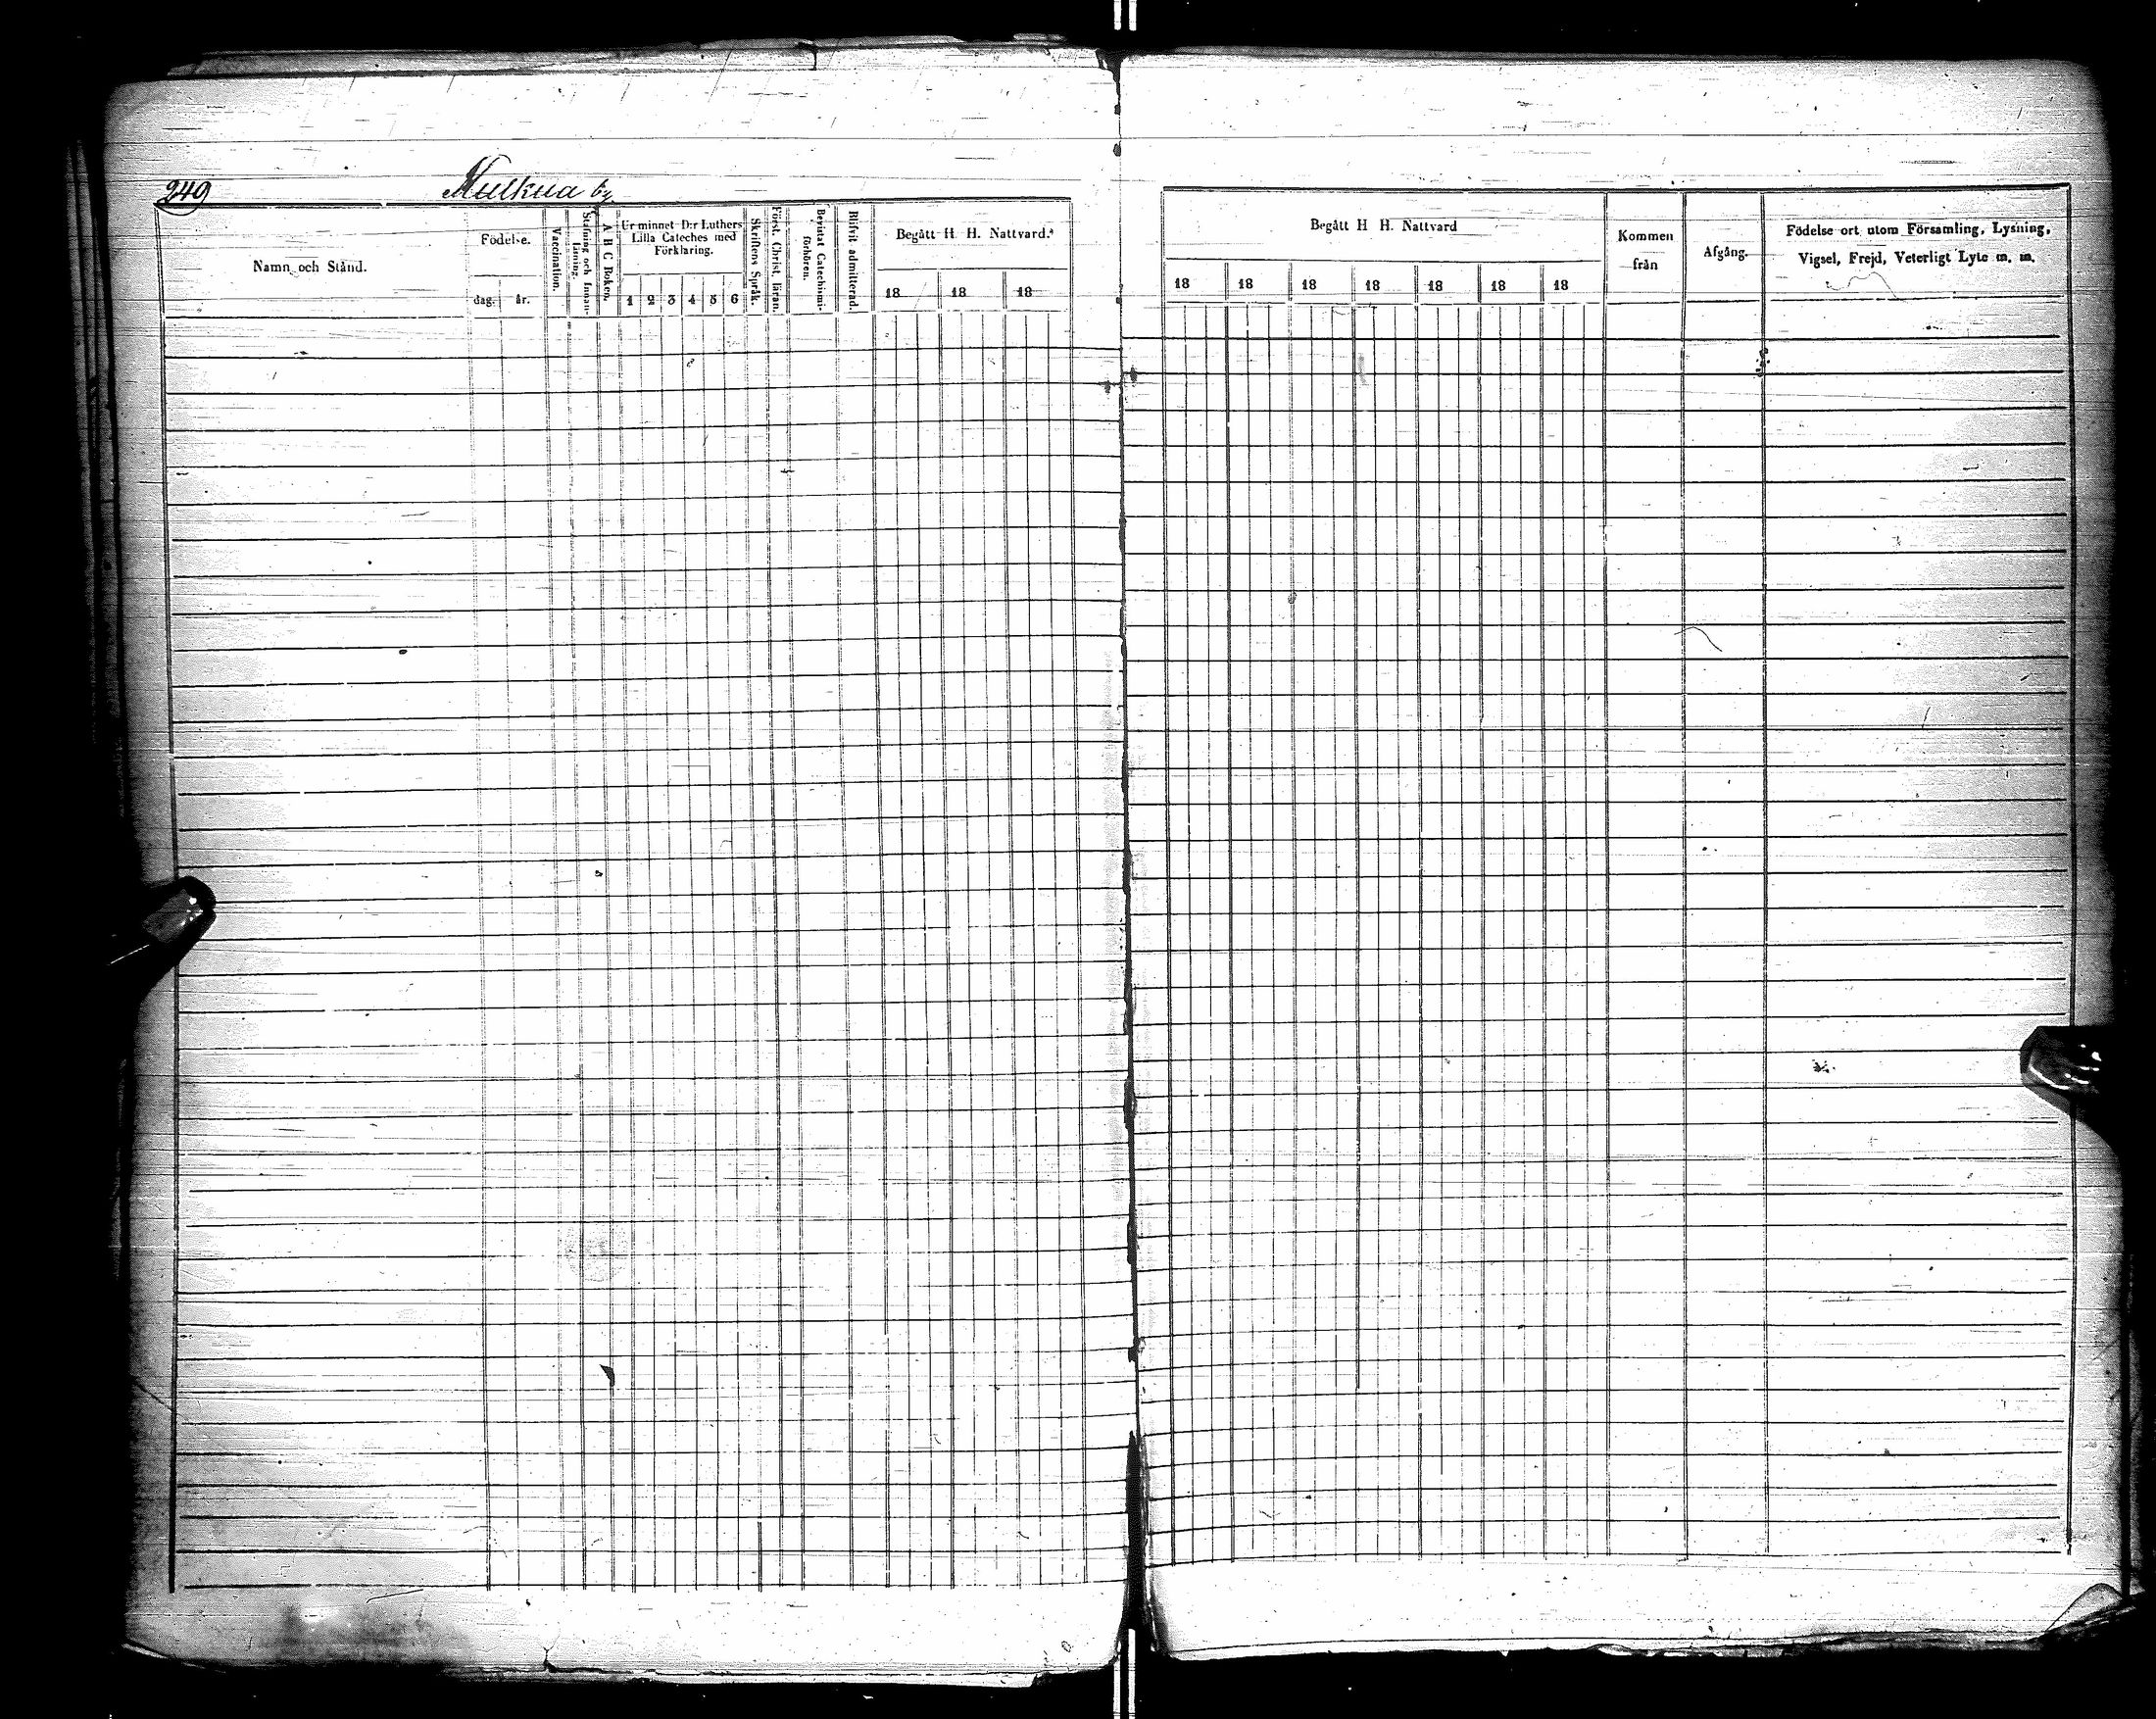 249
Mulkua by
Namn och Stånd.
Födelse.
dag. år.
Vaccination.
Stafning och Innan-
läsning.
A B C Boken.
Ur minnet D:r Luthers
Lilla Cateches med
Förklaring.
1 2 3 4 5 6
Skriftens Språk.
Först. Christ. läran.
Bevistat Catechismi-
förhören.
Blifvit admitterad.
Begått H. H. Nattvard.
18 18 18
Begått H H. Nattvard
18 18 18 18 18 18 18
Kommen
från
Afgång.
Födelse ort utom Församling, Lysning,
Vigsel, Frejd, Veterligt Lyte m. m.